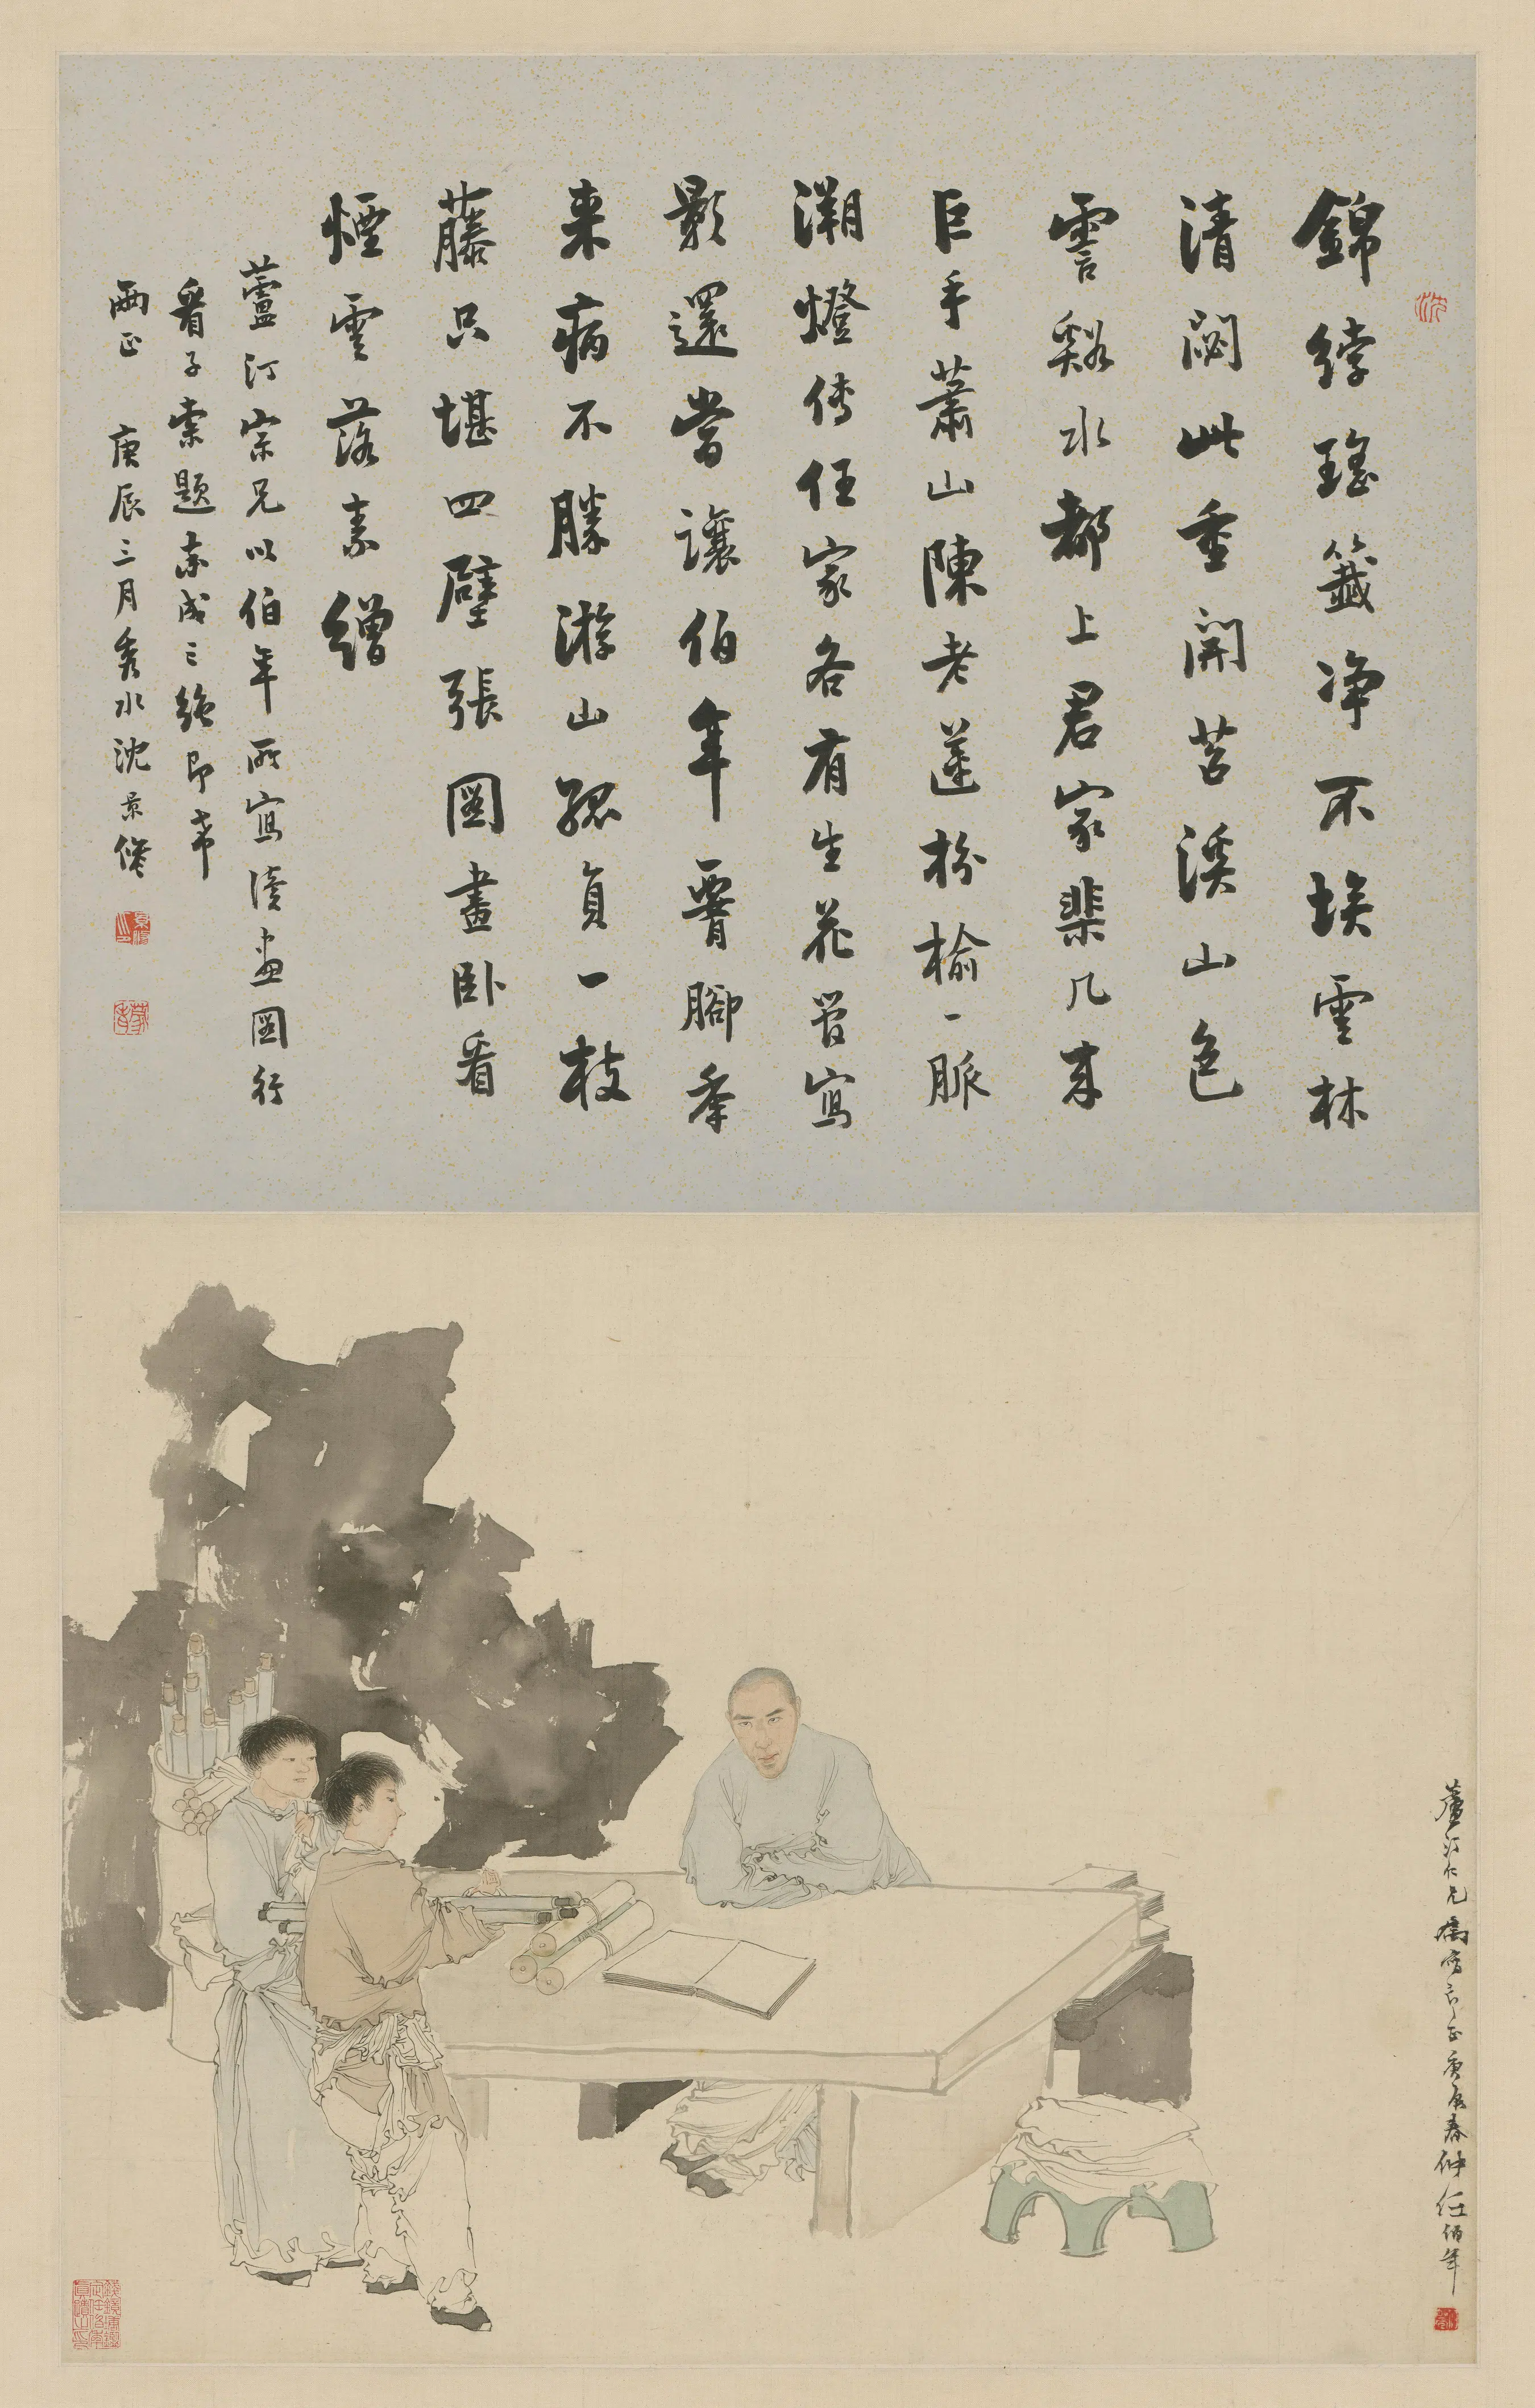 錦綍瑤籤净不埃雲林
清閟此重開苕溪山色
霅谿水都上君家棐几来
巨手蕭山陳老蓮枌榆一脈
溯燈傳任家各有生花管寫
影還當讓伯年腎腳年
来病不勝游山孤負一枝
藤只堪四壁張圖畫卧看
煙雲落素繒
蘆汀宗兄以伯年所寫讀畫圖行
看子索題率成三絶即希
兩正 庚辰三月秀水沈景修
蘆汀仁兄屬寫即正庚辰春仲任伯年